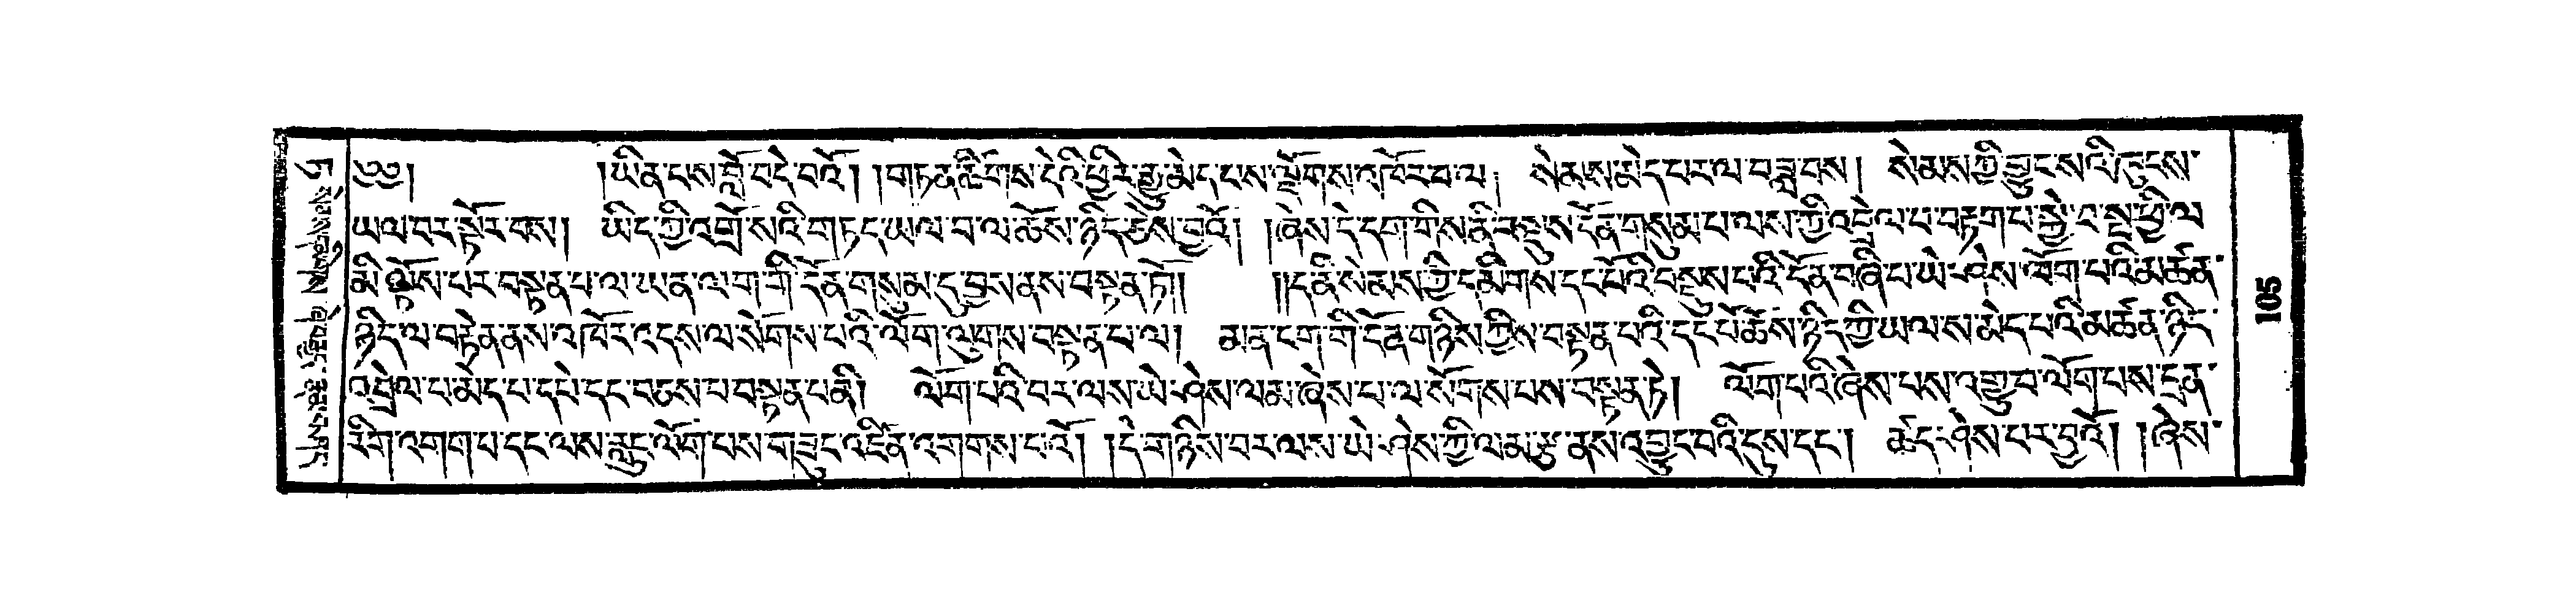 ༄༅། །ཡིན་པས་བློ་བདེ་བའོ། །གཏན་རྫོགས་དེའི་ཕྱིར་རྒྱུ་མེད་པས་ལྡོགས་འཁོར་བ་ལ། སེམས་མེད་པར་ལ་བཟླ་བས། སེམས་ཀྱི་བྱུང་སའི་ཁུངས་
ཡལ་བར་སྟོར་བས། ཡིད་ཀྱི་འགྲོ་སའི་གཏད་ཡལ་བ་ལ་ཆོས་ཉིད་ཅེས་བྱའོ། །ཞེས་དེ་དག་གིས་ནི་བསྡུས་དོན་གསུམ་པ་ལས་ཀྱི་འཕྲེལ་པ་བརྟག་པ་སྐྱེ་བ་སྔ་ཕྱི་ལ
མི་ལྟོས་པར་བསྟན་པ་ལ་ཡན་ལག་གི་དོན་གསུམ་དུ་བྱས་ནས་བསྟན་ཏོ།། །།ད་ནི་སེམས་ཀྱི་དམིགས་དང་པོའི་བསྡུས་པའི་དོན་བཞི་པ་ཡེ་ཤེས་ལོག་པའི་མཚན་
ཉིད་ལ་བརྟེན་ནས་འཁོར་འདས་ལ་སོགས་པའི་ལོག་ལུགས་བསྟན་པ་ལ། མན་ངག་གི་དོན་གཉིས་ཀྱིས་བསྟན་པའི་དང་པོ་ཆོས་ཉིད་ཀྱི་ཡལ་ས་མེད་པའི་མཚན་ཉིད་
འཕྲེལ་པ་མེད་པ་དཔེ་དང་བཅས་པ་བསྟན་པ་ནི། ལོག་པའི་བར་ལས་ཡེ་ཤེས་ལམ་ཞེས་པ་ལ་སོགས་པས་བསྟན་ཏེ། ལོག་པའི་ཞེས་པས་འབྱུ་བ་ལོག་པས་དྲན་
རིག་འགག་པ་དང་ལས་རླུང་ལོག་པས་གཟུང་འཛིན་འགགས་པའོ། །དེ་གཉིས་བར་ལས་ཡེ་ཤེས་ཀྱི་ལམ་སྣ་ནས་འབྱུང་བའི་དུས་དང་། ཚད་ཤེས་པར་བྱའོ། །ཞེས་
105